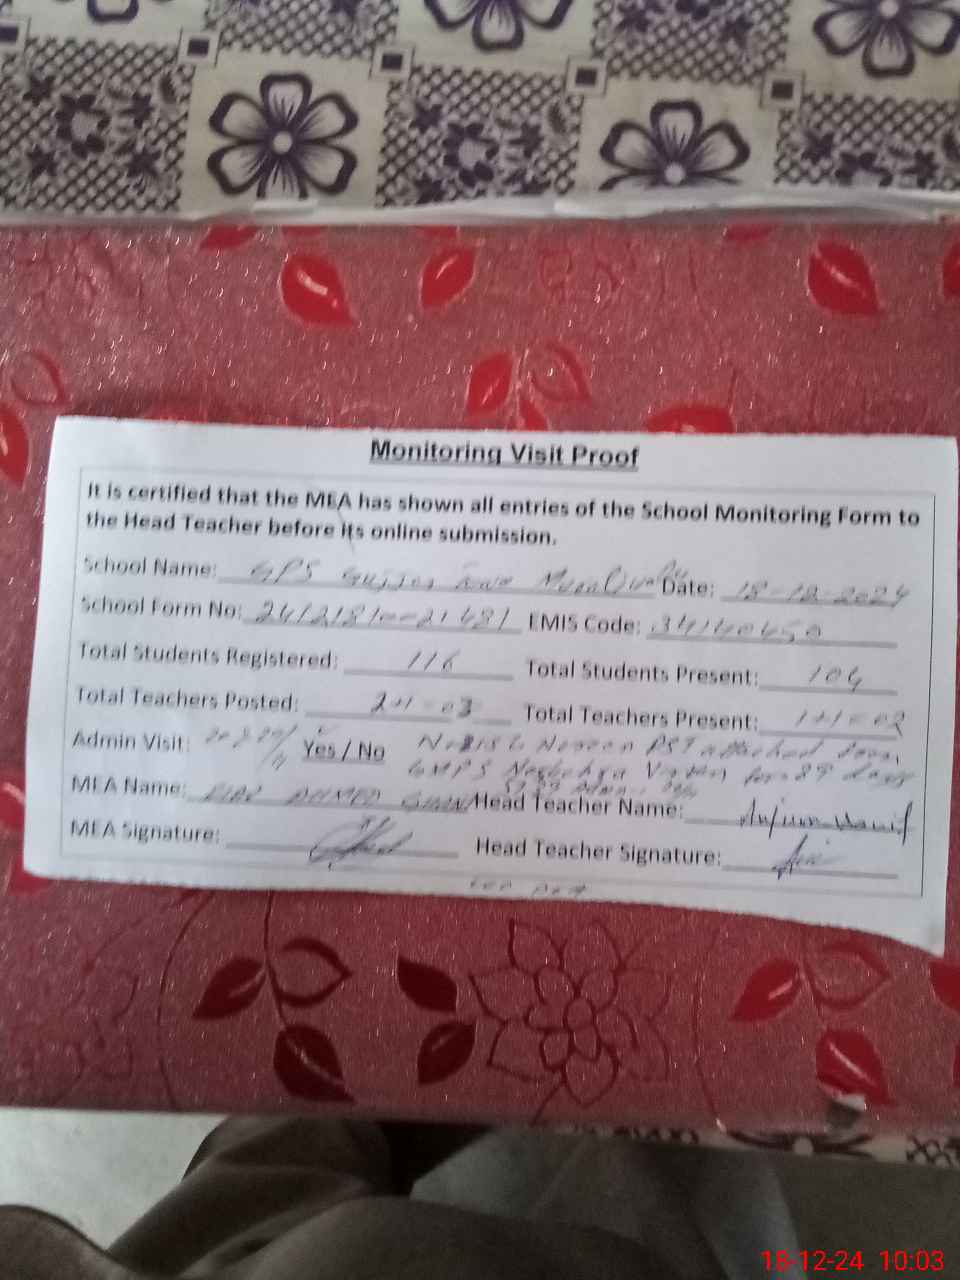 Monitoring Visit Proof
It is certified that the MEA has shown all entries of the School Monitoring Form to
the Head Teacher before its online submission.
School Name: GPS Date: 18-12-2024
School Form No: EMIS Code: 34140650
Total Students Registered: 116 Total Students Present: 104
Total Teachers Posted: 2+1=03 Total Teachers Present: 1+1=02
Admin Visit: Yes / No PST attached
GMPS for 89 days
MEA Name: AHMED Head Teacher Name: Anjum Hanif
MEA Signature: Head Teacher Signature:
18-12-24 10:03